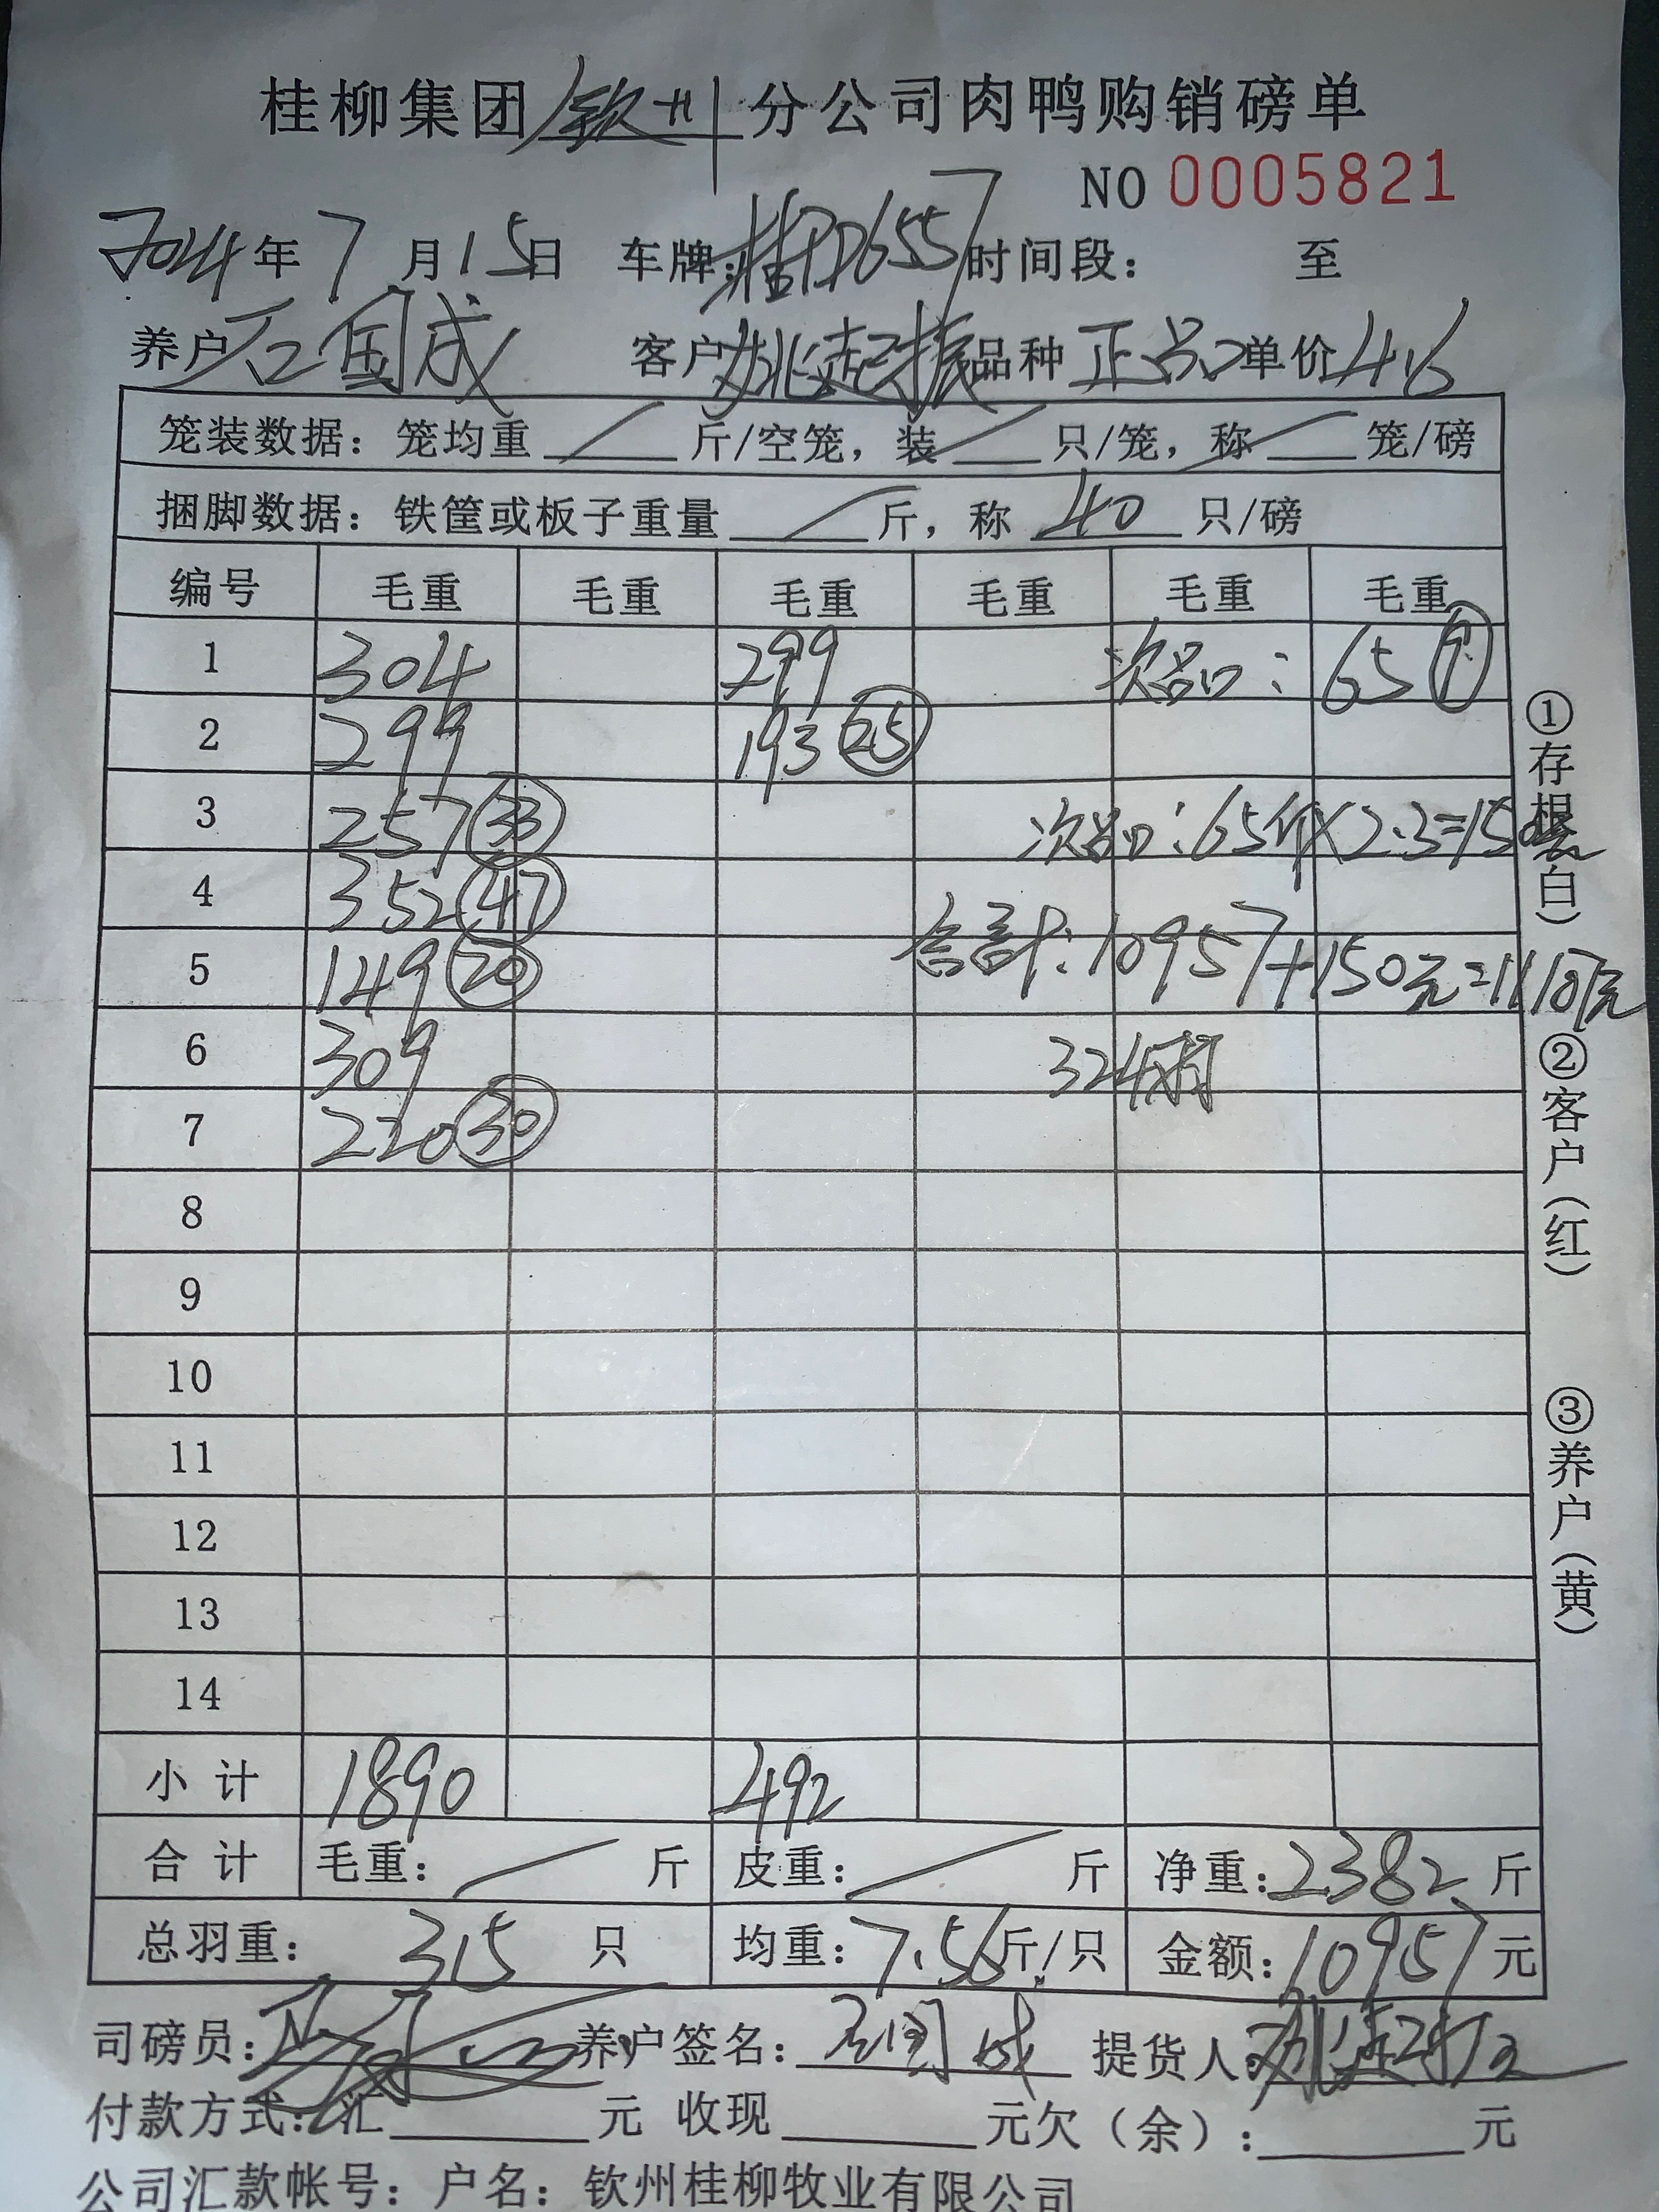 桂柳集团钦州分公司肉鸭购销磅单
NO 0005821
2024年7月15日 车牌:桂PD6557时间段: 至
养户石国成 客户姚起振品种正品单价4.6
笼装数据:笼均重 斤/空笼,装 只/笼,称 笼/磅
捆脚数据:铁筐或板子重量 斤,称40只/磅
编号 毛重 毛重 毛重 毛重 毛重 毛重
1 304 299 次品: 65 9
2 299 193 25
3 257 33 次品:65斤×2.3=150元
4 352 47
5 149 20 合计:10957+150元=11107元
6 309 324只
7 220 30
8
9
10
11
12
13
14
小计 1890 492
合计 毛重: 斤 皮重: 斤 净重:2382斤
总羽重: 315 只 均重:7.56斤/只 金额:10957元
司磅员: 养户签名:石国成 提货人:姚起振
付款方式:汇 元 收现 元欠(余): 元
公司汇款帐号:户名:钦州桂柳牧业有限公司
①存根(白)
②客户(红)
③养户(黄)